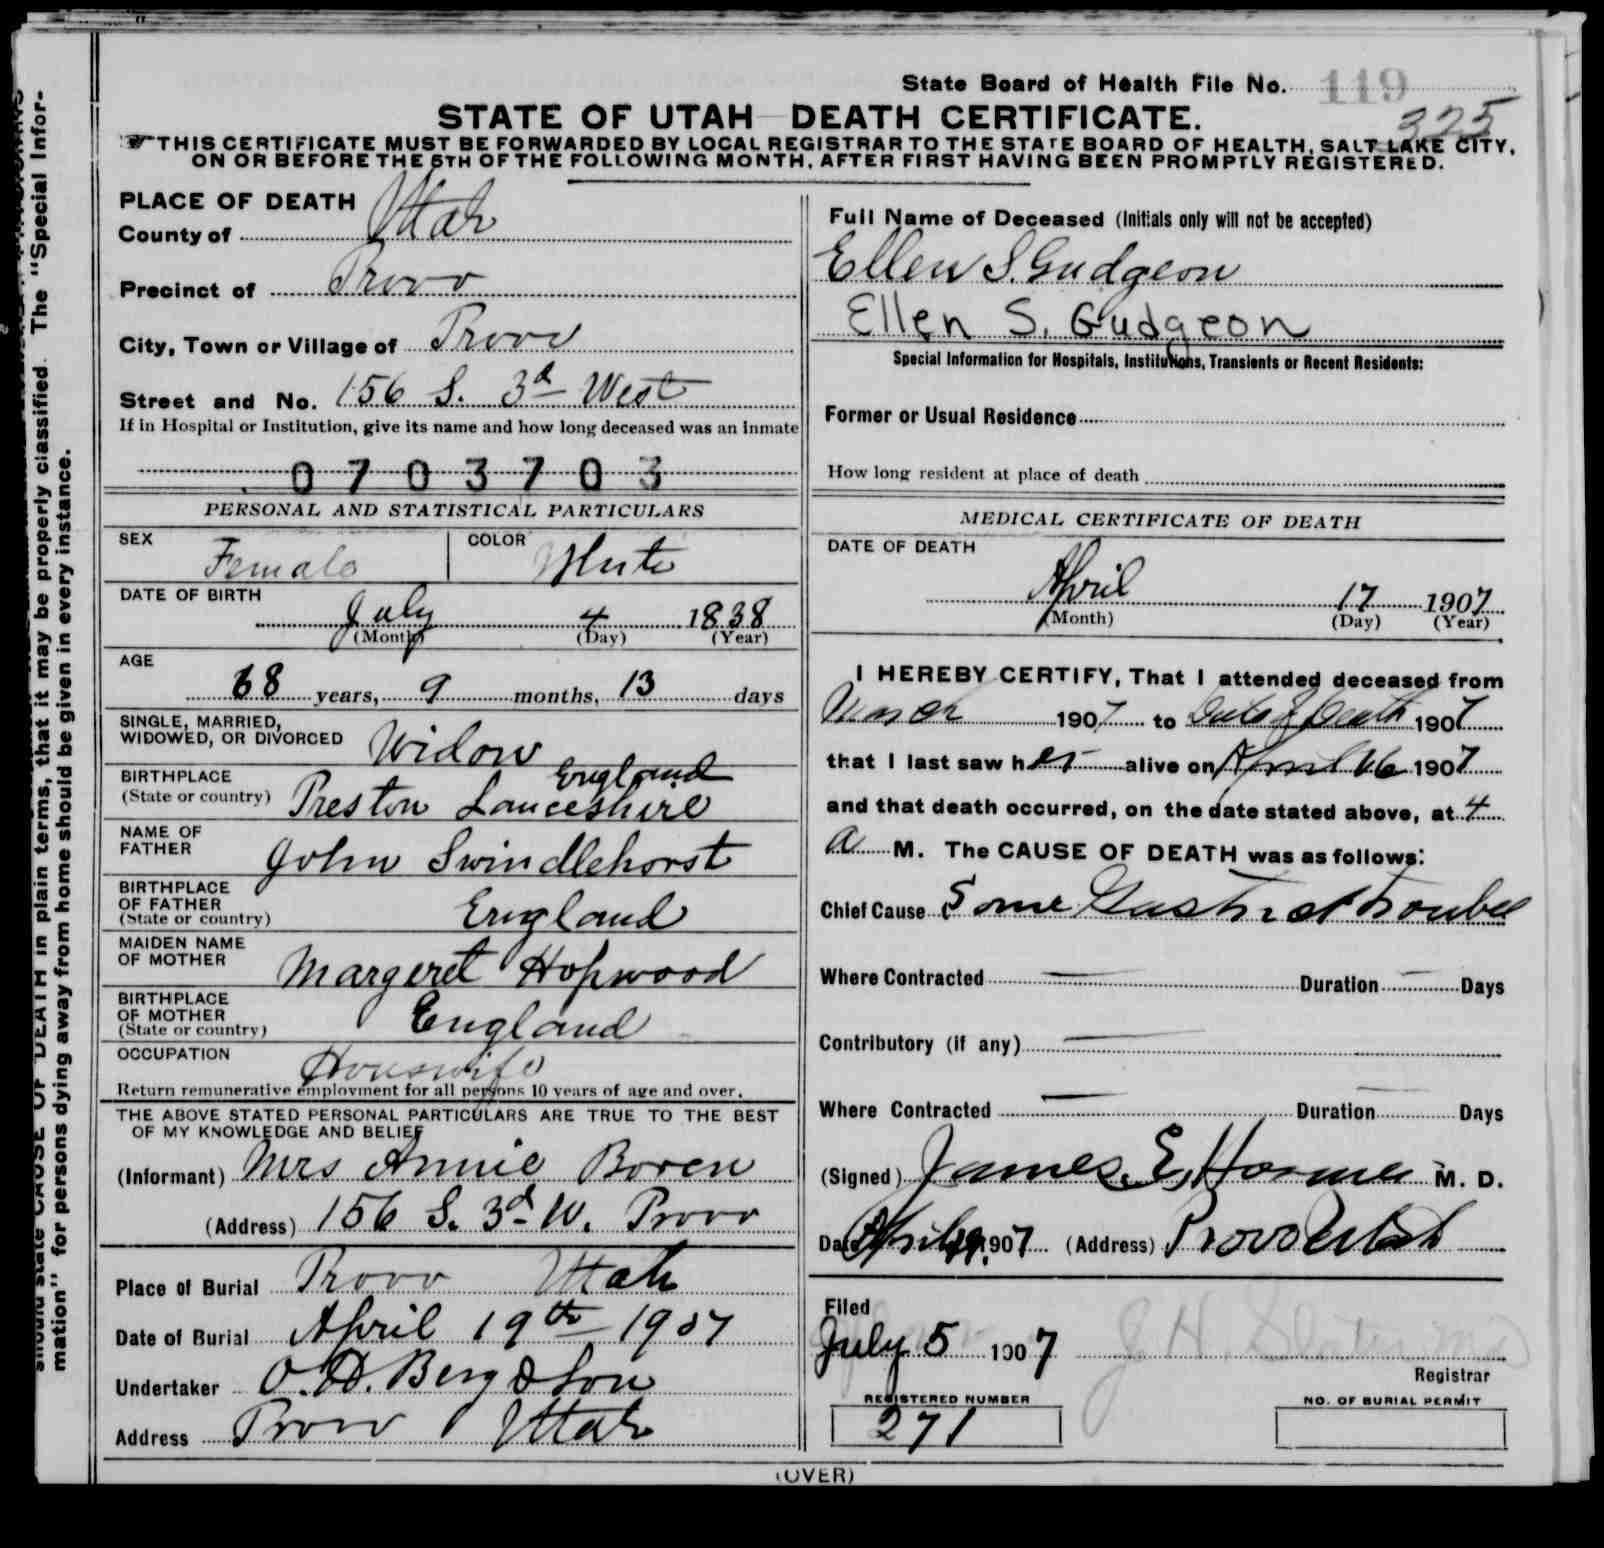 State Board of Health File No. 119
325
STATE OF UTAH DEATH CERTIFICATE.
THIS CERTIFICATE MUST BE FORWARDED BY LOCAL REGISTRAR TO THE STATE BOARD OF HEALTH, SALT LAKE CITY,
ON OR BEFORE THE 5TH OF THE FOLLOWING MONTH, AFTER FIRST HAVING BEEN PROMPTLY REGISTERED.
should state CAUSE OF DEATH in plain terms, that it may be properly classified. The "Special Infor-
mation" for persons dying away from home should be given in every instance.
PLACE OF DEATH
County of Utah
Precinct of Provo
City, Town or Village of Provo
Street and No. 156 S. 3d West
If in Hospital or Institution, give its name and how long deceased was an inmate
0703703
PERSONAL AND STATISTICAL PARTICULARS
SEX Female COLOR White
DATE OF BIRTH
July 4 1838
(Month) (Day) (Year)
AGE
68 years, 9 months, 13 days
SINGLE, MARRIED,
WIDOWED, OR DIVORCED Widow
BIRTHPLACE England
(State or country) Preston Lanceshire
NAME OF
FATHER John Swindlehorst
BIRTHPLACE
OF FATHER
(State or country) England
MAIDEN NAME
OF MOTHER Margeret Hopwood
BIRTHPLACE
OF MOTHER
(State or country) England
OCCUPATION Houswife
Return remunerative employment for all persons 10 years of age and over.
THE ABOVE STATED PERSONAL PARTICULARS ARE TRUE TO THE BEST
OF MY KNOWLEDGE AND BELIEF
(Informant) Mrs Annie Boren
(Address) 156 S. 3d W. Provo
Place of Burial Provo Utah
Date of Burial April 19th 1907
Undertaker O. H. Berg & Son
Address Provo Utah
Full Name of Deceased (Initials only will not be accepted)
Ellen S. Gudgeon
Ellen S. Gudgeon
Special Information for Hospitals, Institutions, Transients or Recent Residents:
Former or Usual Residence
How long resident at place of death
MEDICAL CERTIFICATE OF DEATH
DATE OF DEATH
April 17 1907
(Month) (Day) (Year)
I HEREBY CERTIFY, That I attended deceased from
March 1907 to Date of Death 1907
that I last saw her alive on April 16 1907
and that death occurred, on the date stated above, at 4
a M. The CAUSE OF DEATH was as follows:
Chief Cause Some Gastric trouble
Where Contracted Duration Days
Contributory (if any)
Where Contracted Duration Days
(Signed) James E. M. D.
Date April 1907 (Address) Provo Utah
Filed
July 5 1907 J. H.
Registrar
REGISTERED NUMBER
271
NO. OF BURIAL PERMIT
(OVER)